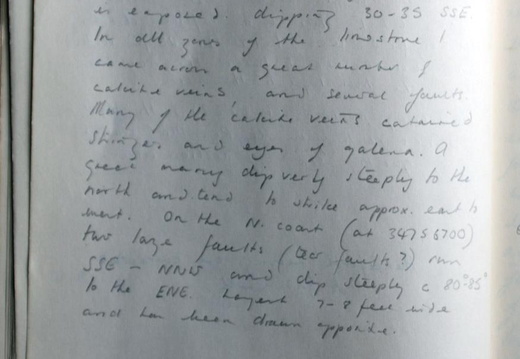 is exposed. dipping 30-35 SSE.
In all zones of the limestone I
came across a great number of
calcite veins and several faults.
Many of the calcite veins contained
stringers and eyes of galena. A
great many dip very steeply to the
north and tend to strike approx. east to
west. On the N. coast (at 34756700)
two large faults (tear faults?) run
SSE - NNW and dip steeply @ 80°-85°
to the ENE. Largest 7-8 feet wide
and has been drawn opposite.